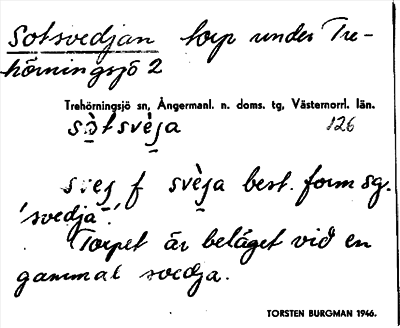 Sotsvedjan torp under Tre-
hörningsjö 2
Trehörningsjö sn, Ångermanl. n. doms. tg, Västernorrl. län.
sòtsvèja 126
svej f svèja best. form sg.
'svedja'.
Torpet är beläget vid en
gammal svedja.
TORSTEN BURGMAN 1946.